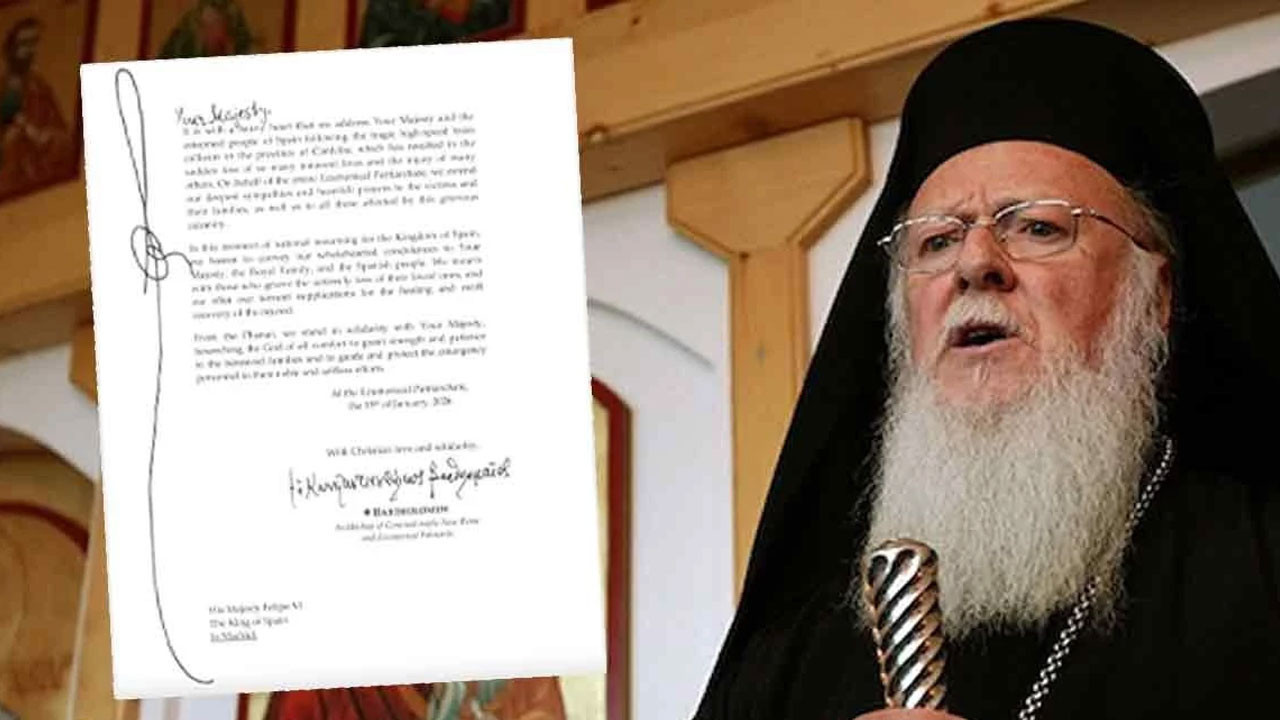 Your Majesty,
It is with a heavy heart that we address Your Majesty and the
esteemed people of Spain following the tragic high-speed train
collision in the province of Cordoba, which has resulted in the
sudden loss of so many innocent lives and the injury of many
others. On behalf of the entire Ecumenical Patriarchate, we extend
our deepest sympathies and heartfelt prayers to the victims and
their families, as well as to all those affected by this grievous
calamity.
In this moment of national mourning for the Kingdom of Spain,
we hasten to convey our wholehearted condolences to Your
Majesty, the Royal Family, and the Spanish people. We mourn
with those who grieve the untimely loss of their loved ones, and
we offer our fervent supplications for the healing and swift
recovery of the injured.
From the Phanar, we stand in solidarity with Your Majesty,
beseeching the God of all comfort to grant strength and patience
to the bereaved families and to guide and protect the emergency
personnel in their noble and selfless efforts.
At the Ecumenical Patriarchate,
the 19th of January, 2026
With Christian love and solidarity,
† BARTHOLOMEW
Archbishop of Constantinople-New Rome
and Ecumenical Patriarch
His Majesty Felipe VI
The King of Spain
In Madrid